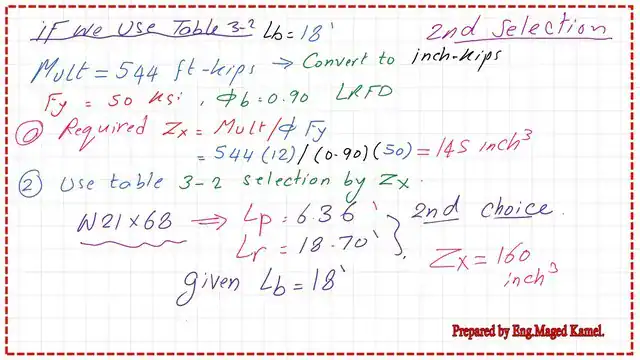 if we use Table 3-2 Lb=18' 2nd Selection
Mult = 544 ft-kips → Convert to inch-kips
Fy = 50 ksi, Φb=0.90 LRFD
① Required Zx = Mult/Φ Fy
= 544(12)/(0.90)(50) = 145 inch³
② Use table 3-2 selection by Zx.
W21x68 ⇒ Lp = 6.36' } 2nd choice.
Lr = 18.70' Zx = 160 inch³
given Lb = 18'
Prepared by Eng.Maged Kamel.